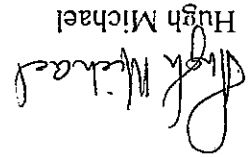 Hugh Michael
Hugh Michael